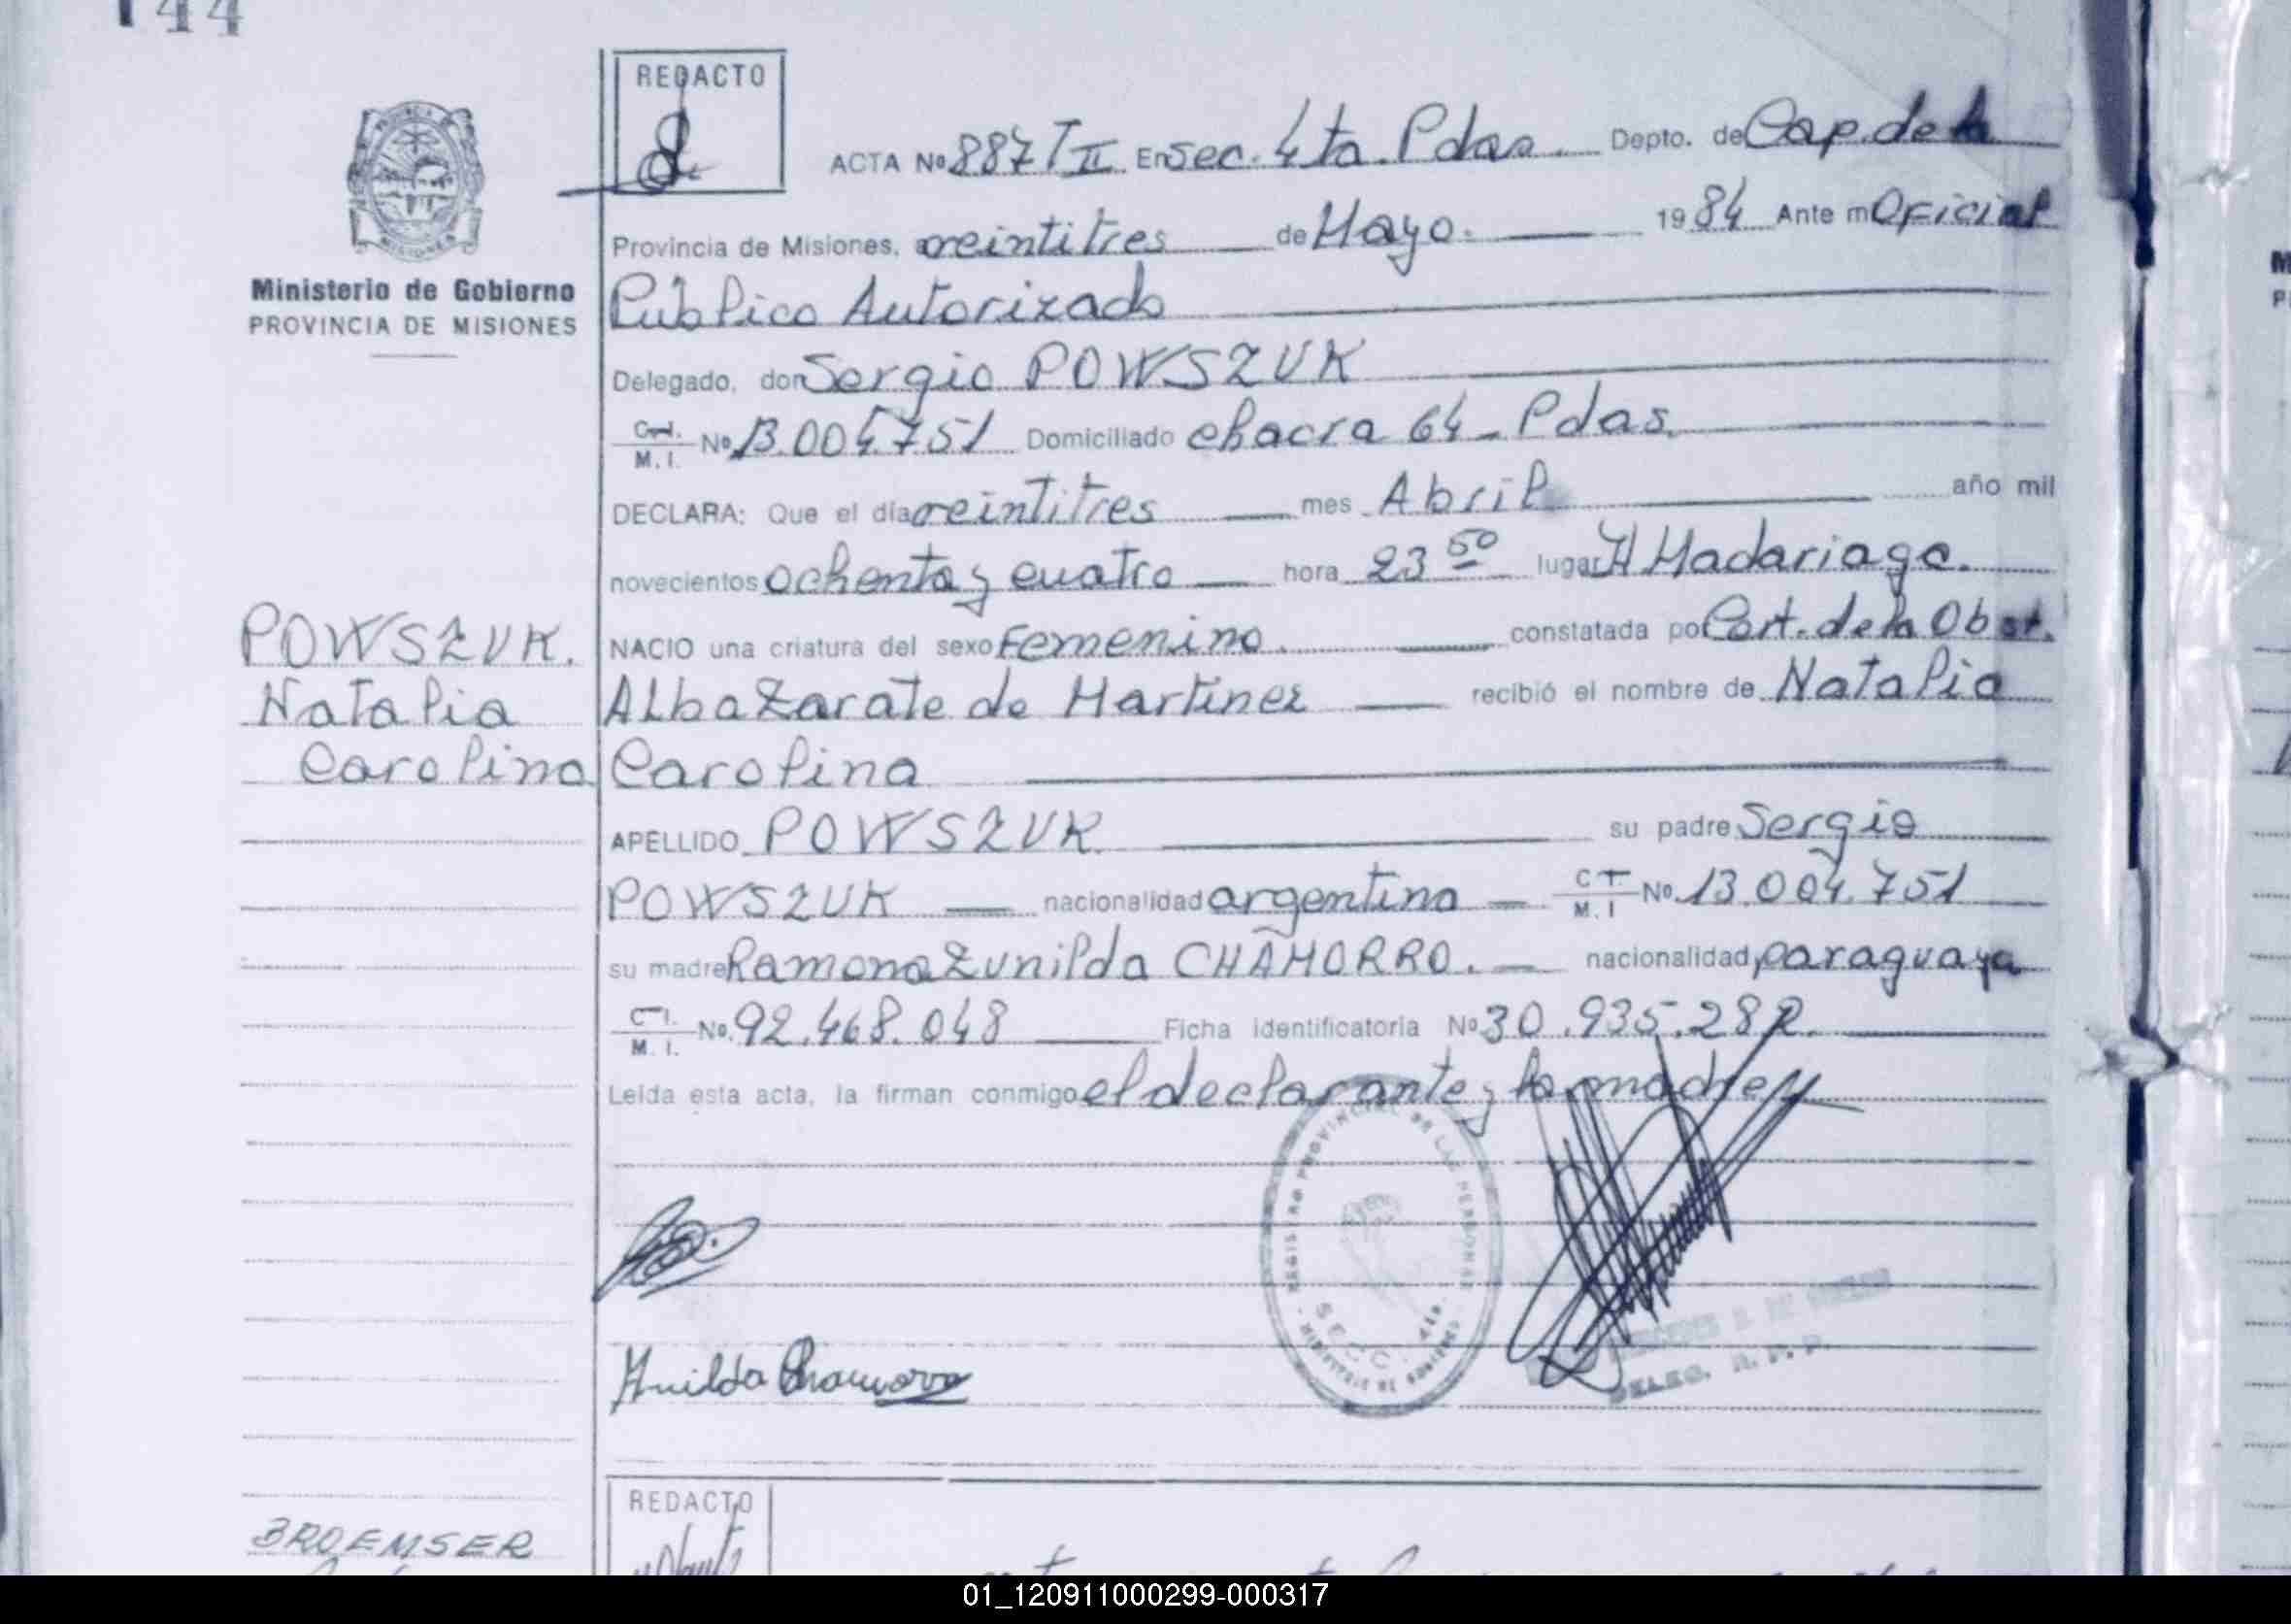 144
REDACTO
ACTA Nº 887 T II En Sec. 4ta. Pdas. Depto. de Cap. de la
Provincia de Misiones, a veintitres de Mayo. 1984 Ante mi Oficial
Ministerio de Gobierno
PROVINCIA DE MISIONES
Público Autorizado
Delegado, don Sergio POWSZUK
C.I. M.I. Nº 13.004.751 Domiciliado chacra 64 - Pdas.
DECLARA: Que el día veintitres mes Abril año mil
novecientos ochenta y cuatro hora 23 50 lugar H Madariaga.
NACIO una criatura del sexo Femenino. constatada po Cert. de la Obst.
Alba Zarate de Martinez recibió el nombre de Natalia
Carolina
POWSZUK.
Natalia
Carolina
APELLIDO POWSZUK su padre Sergio
POWSZUK nacionalidad argentina C I. M. I Nº 13.004.751
su madre Ramona Zunilda CHAMORRO. nacionalidad paraguaya
C I. M. I. Nº 92.468.048 Ficha identificatoria Nº 30.935.282.
Leída esta acta, la firman conmigo el declarante y la madre
REGISTRO PROVINCIAL DE LAS PERSONAS
SECC. 4ta.
MINISTERIO DE GOBIERNO
DELEG. R. P. P.
Zunilda Chamorro
REDACTO
BROEMSER
01_120911000299-000317